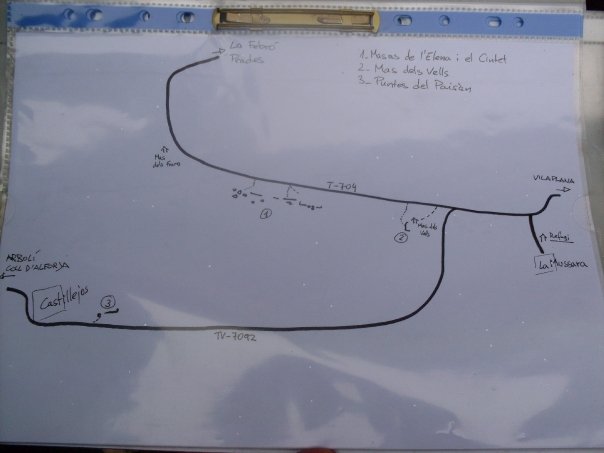 La Febró
Prades
1_ Masos de l'Elena i el Cintet
2_ Mas dels Vells
3_ Puntes del Paisan
Mas
T-704
VILAPLANA
1
2
Mas dels
Vells
Refugi
La Mussara
ARBOLÍ
COLL D'ALFORJA
Castillejos
3
TV-7092